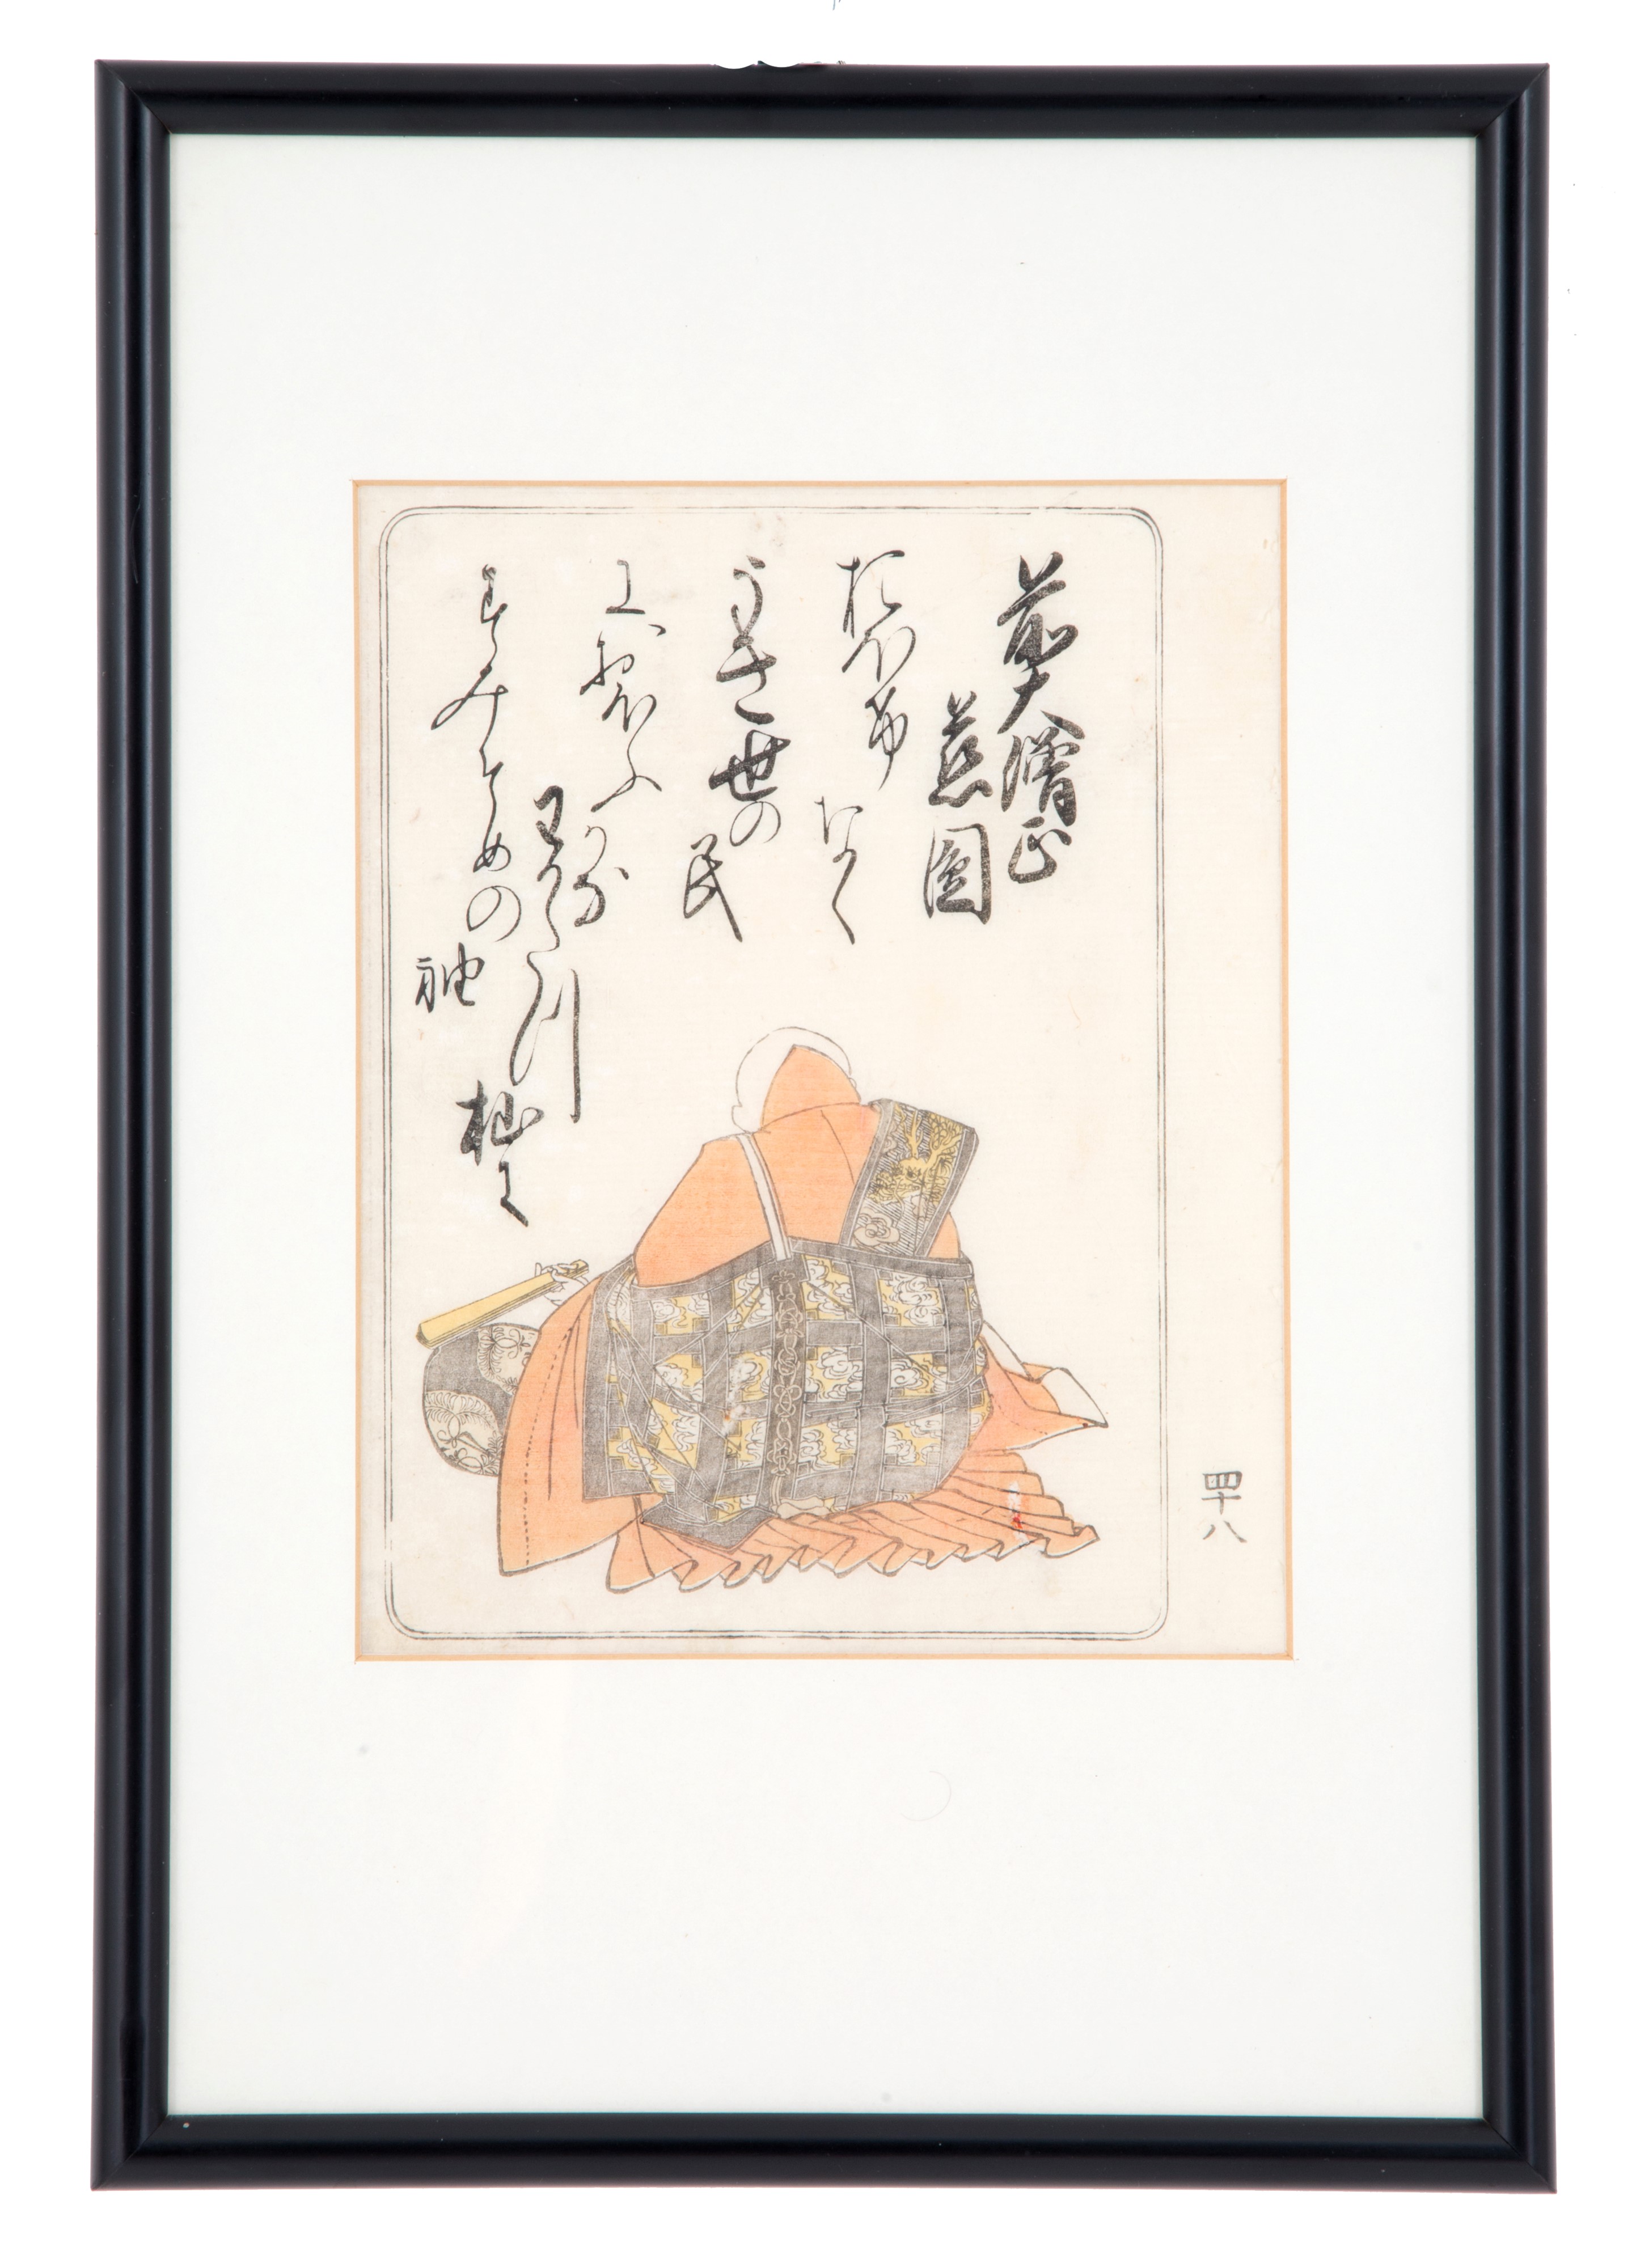 四十八
前大僧正
慈圓
おほけなく
うき世の民
におほふかな
わかたつ杣に
すみそめの袖